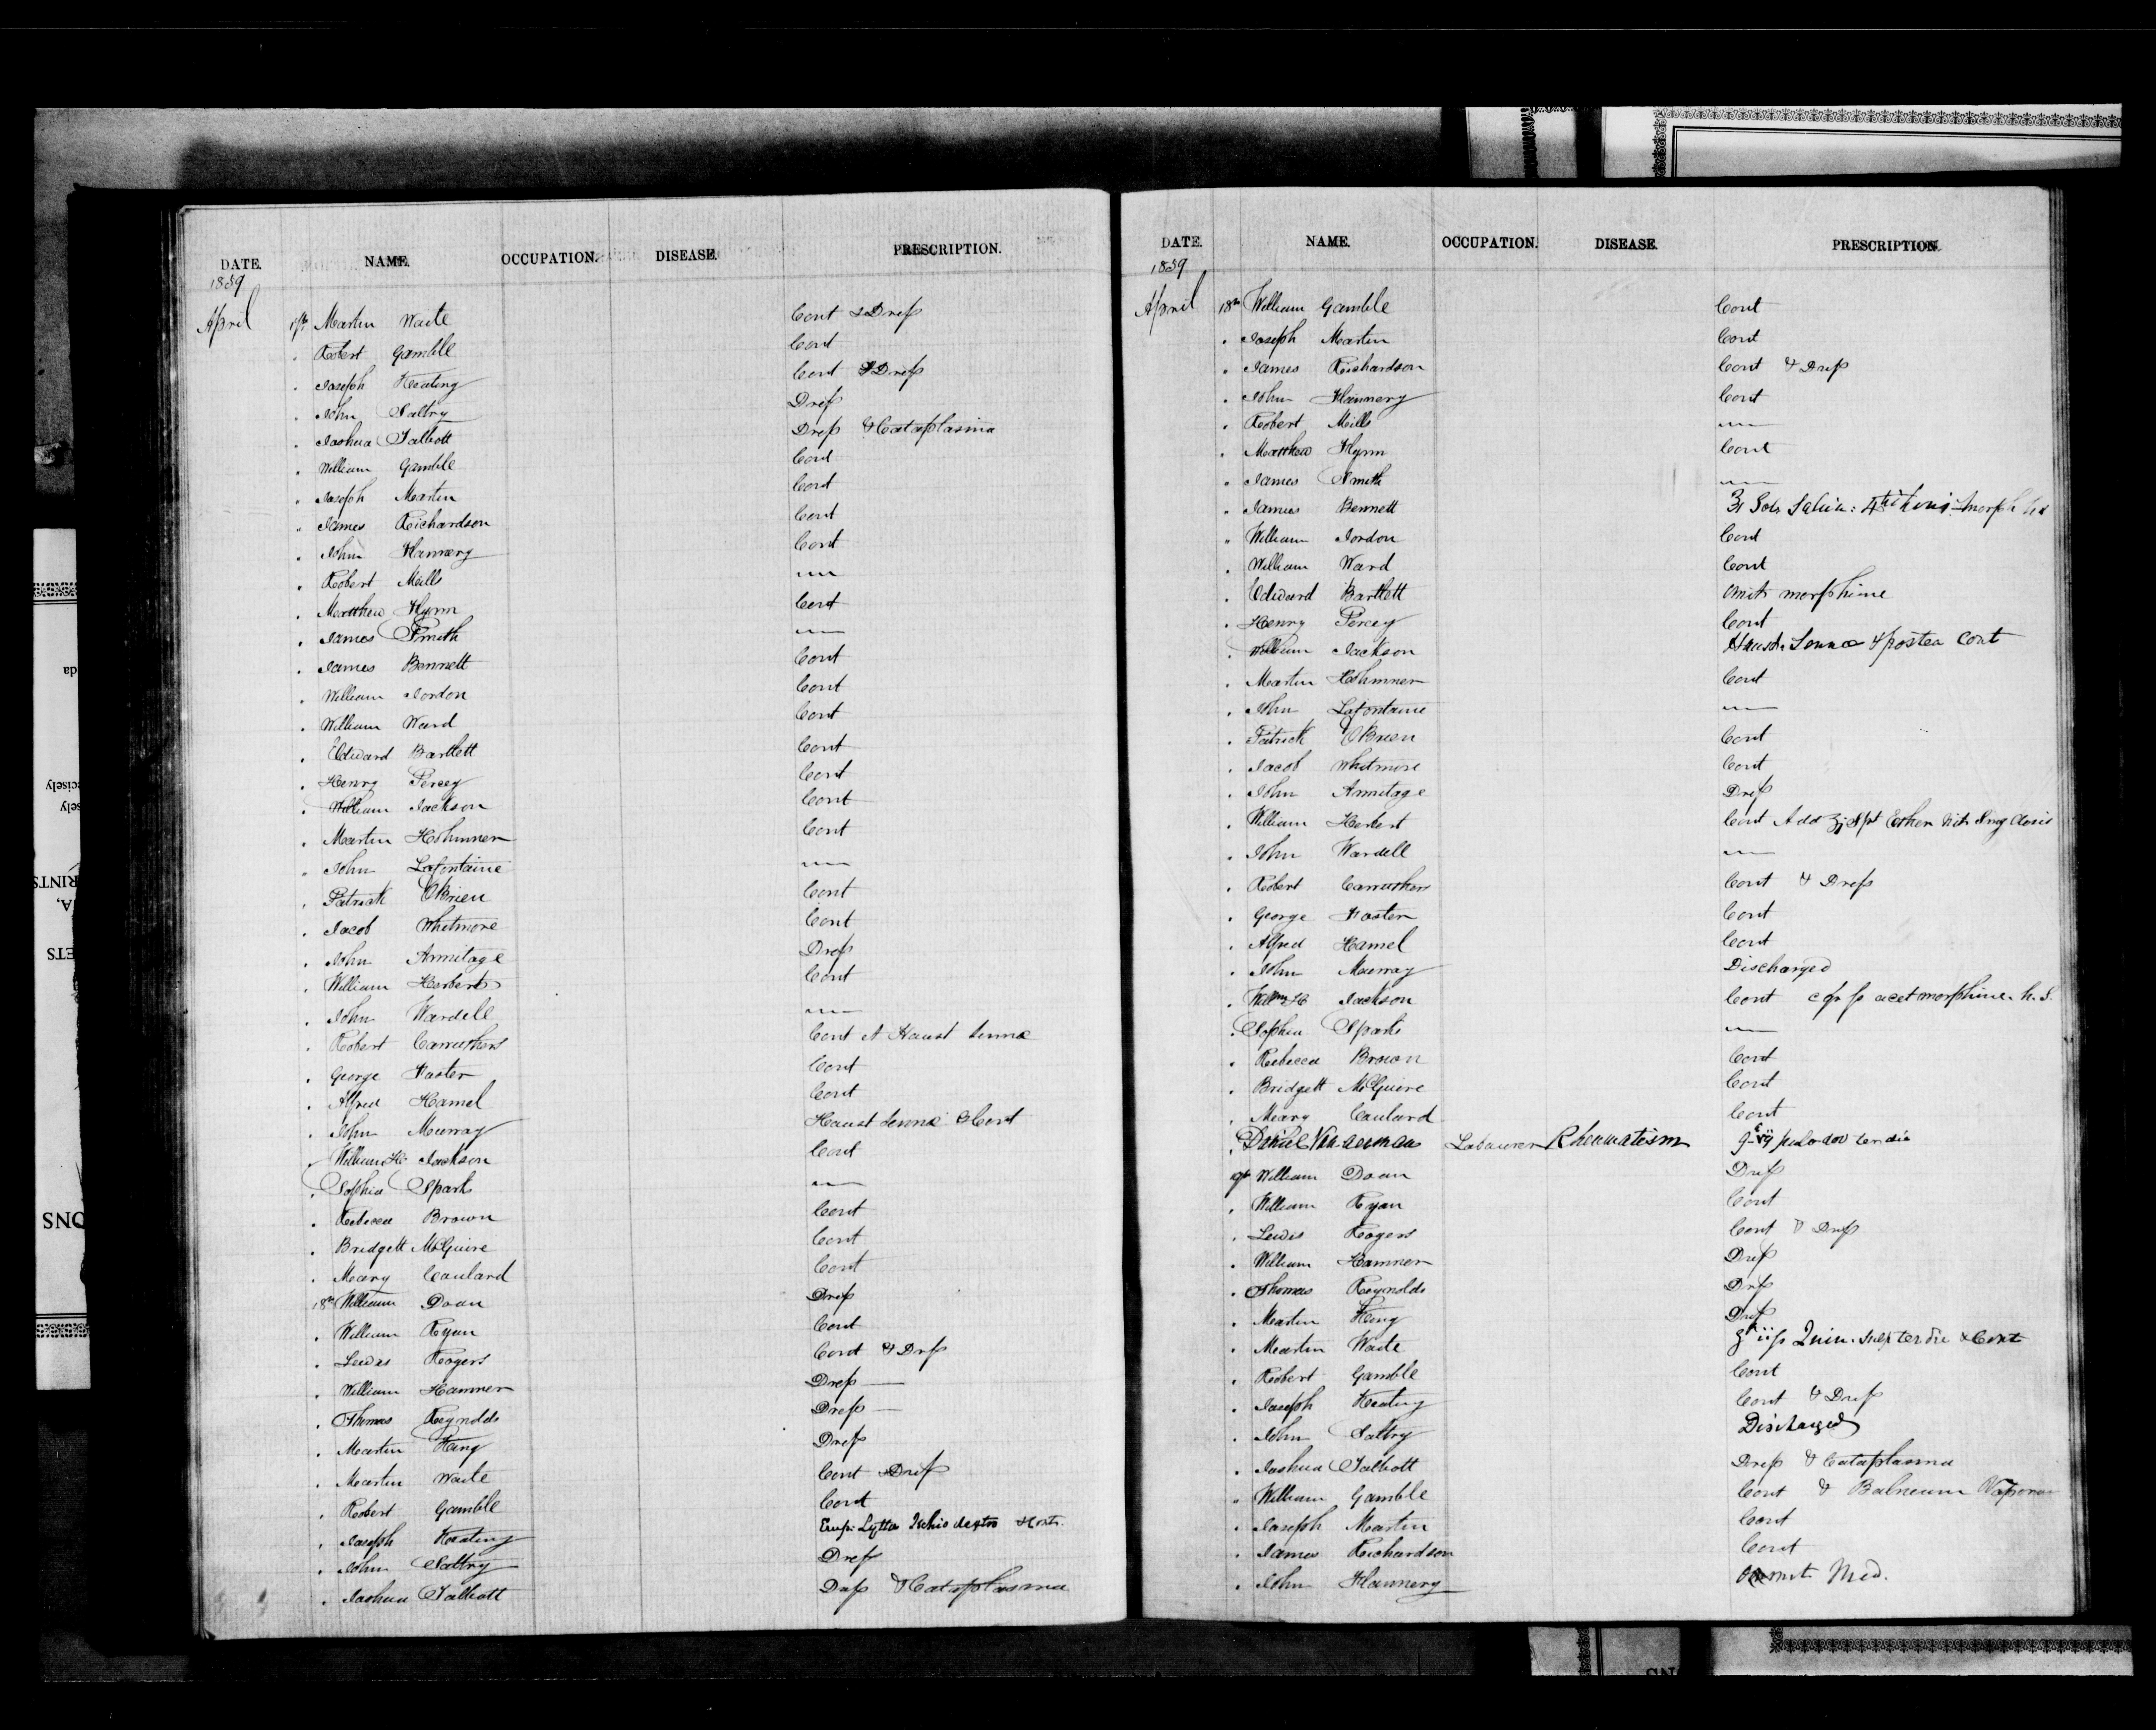 DATE. NAME. OCCUPATION. DISEASE. PRESCRIPTION.
1859
April 17th Martin Waite Cont & Dress
" Robert Gamble Cont
" Joseph Keating Cont & Dress
" John Saltry Dress
" Joshua Talbott Dress & Cataplasma
" William Gamble Cont
" Joseph Martin Cont
" James Richardson Cont
" John Flannery Cont
" Robert Mills "
" Matthew Flynn Cont
" James Smith "
" James Bennett Cont
" William Jordon Cont
" William Ward Cont
" Edward Bartlett Cont
" Henry Percey Cont
" William Jackson Cont
" Martin Cont
" John Lafontaine "
" Patrick OBrien Cont
" Jacob Whitmore Cont
" John Armitage Dress
" William Herbert Cont
" John Wardell "
" Robert Carruthers Cont et Haust Senna
" George Foster Cont
" Alfred Hamel Cont
" John Murray Haust Senna & Cont
" William H. Jackson Cont
" Sophia Sparks "
" Rebecca Brown Cont
" Bridgett McGuire Cont
" Mary Coulard Cont
18th William Doan Dress
" William Ryan Cont
" Lewis Rogers Cont & Dress
" William Hamner Dress
" Thomas Reynolds Dress
" Martin King Dress
" Martin Waite Cont & Dress
" Robert Gamble Cont
" Joseph Keating Emp: Lytta Ischio dextro
" John Saltry Dress
" Joshua Talbott Dress & Cataplasma
DATE. NAME. OCCUPATION. DISEASE. PRESCRIPTION.
1859
April 18th William Gamble Cont
" Joseph Martin Cont
" James Richardson Cont & Dress
" John Flannery Cont
" Robert Mills "
" Matthew Flynn Cont
" James Smith "
" James Bennett
" William Jordon Cont
" William Ward Cont
" Edward Bartlett Omit morphine
" Henry Percey Cont
" William Jackson Haust: Senna & postea Cont
" Martin Cont
" John Lafontaine "
" Patrick OBrien Cont
" Jacob Whitmore Cont
" John Armitage Dress
" William Herbert Cont Add Spt Ether Nit
" John Wardell "
" Robert Carruthers Cont & Dress
" George Foster Cont
" Alfred Hamel Cont
" John Murray Discharged
" Willm H Jackson Cont acet morphine. h. s.
" Sophia Sparks "
" Rebecca Brown Cont
" Bridgett McGuire Cont
" Mary Coulard Cont
" Daniel Labourer Rheumatism ter die
19 William Doan Dress
" William Ryan Cont
" Lewis Rogers Cont & Dress
" William Hamner Dress
" Thomas Reynolds Dress
" Martin King Dress
" Martin Waite Quin. Sulp ter die & Cont
" Robert Gamble Cont
" Joseph Keating Cont & Dress
" John Saltry Discharged
" Joshua Talbott Dress & Cataplasma
" William Gamble Cont & Balneum
" Joseph Martin Cont
" James Richardson Cont
" John Flannery Omit Med.